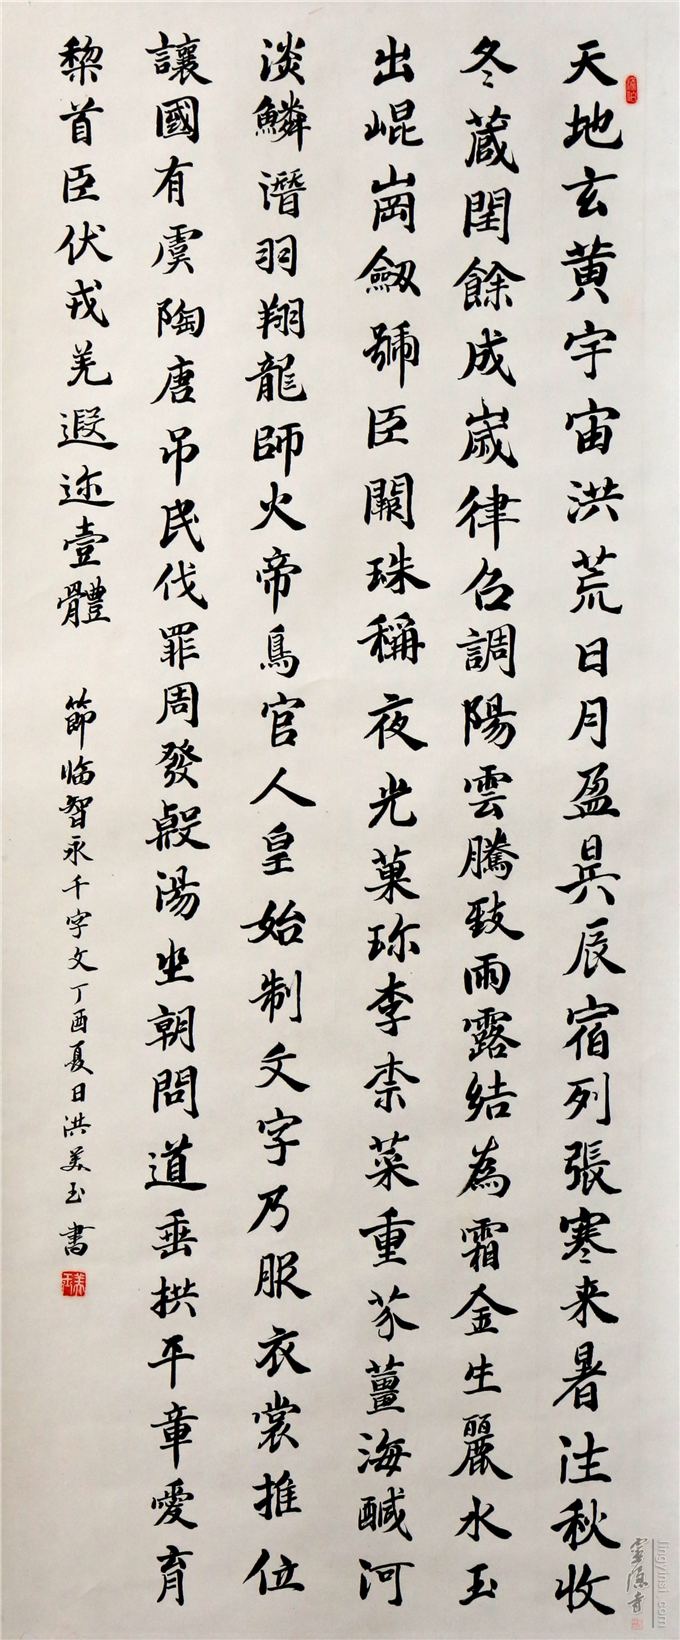 天地玄黄宇宙洪荒日月盈昃辰宿列張寒来暑往秋收
冬蔵閏餘成歲律召調陽雲騰致雨露結為霜金生麗水玉
出崐崗劔號臣闕珠稱夜光菓珎李柰菜重芥薑海醎河
淡鱗潛羽翔龍師火帝鳥官人皇始制文字乃服衣裳推位
讓國有虞陶唐吊民伐罪周發殷湯坐朝問道垂拱平章愛育
黎首臣伏戎羌遐迩壹體
節临智永千字文丁酉夏日洪美玉書
美玉
lingyinsi.com